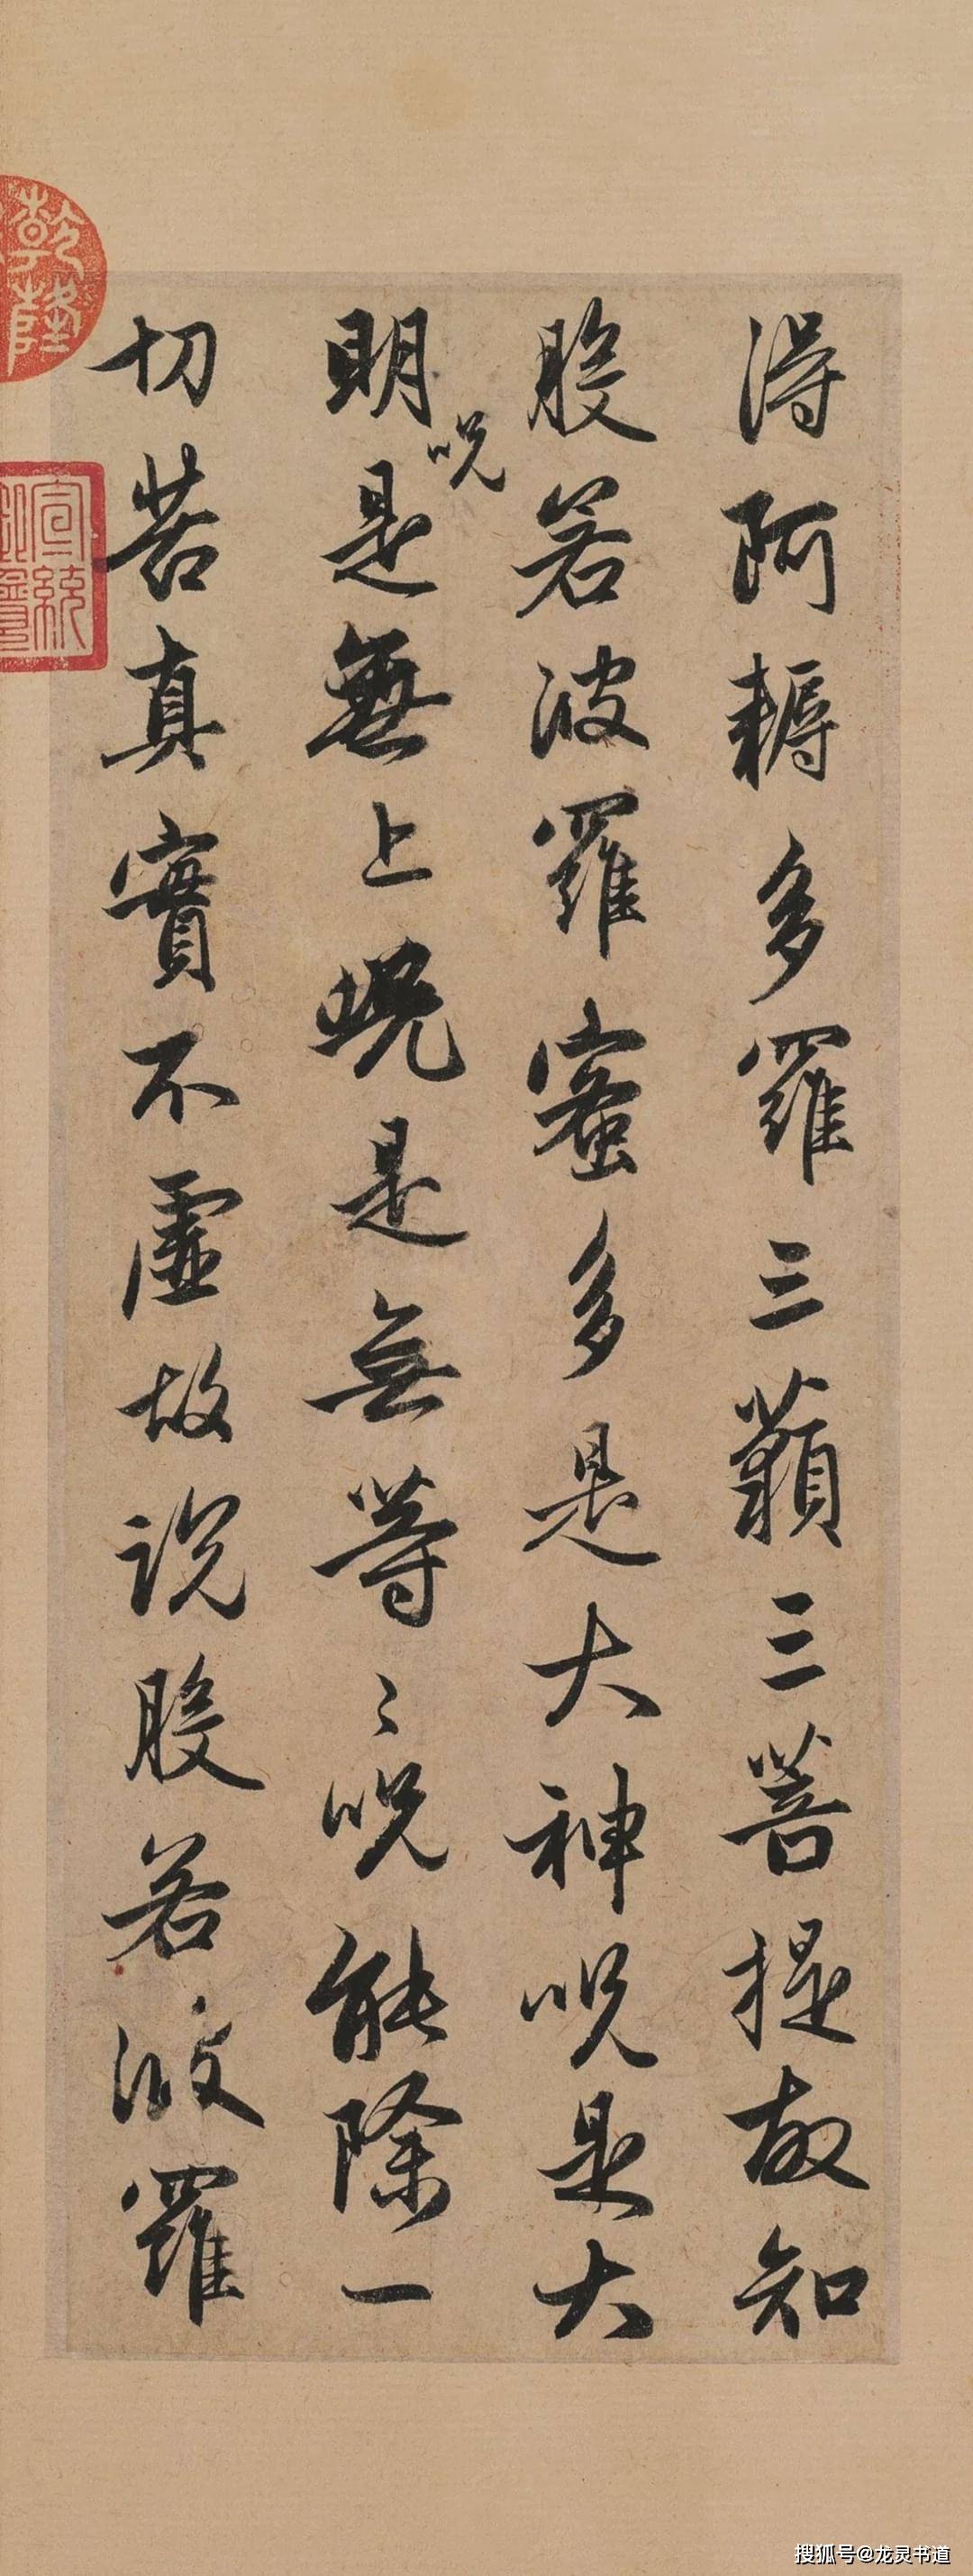 得阿耨多羅三藐三菩提故知
般若波羅蜜多是大神咒是大
明咒是無上咒是無等〻咒能除一
切苦真實不虛故說般若波羅
乾隆
宣統
搜狐号@龙灵书道